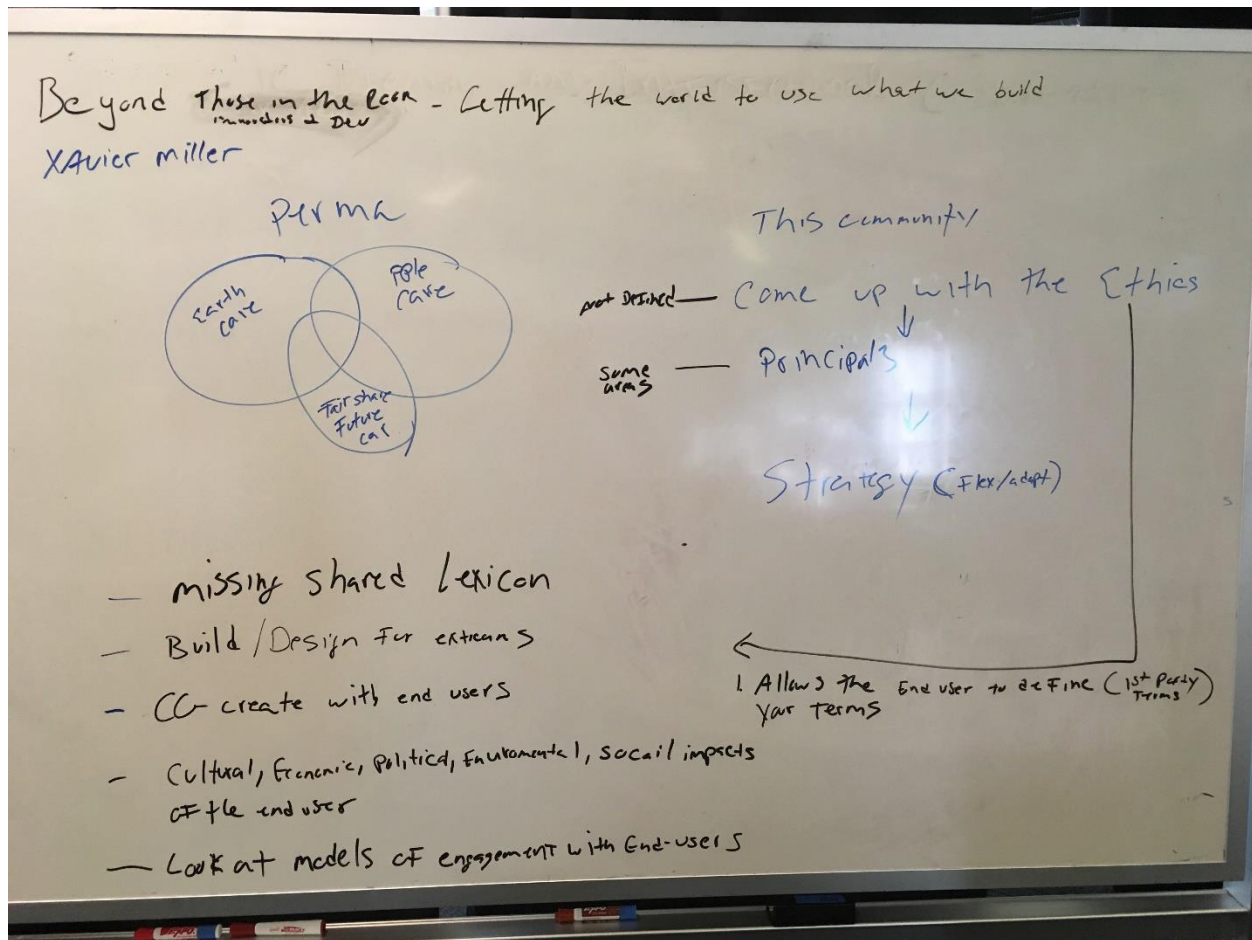 Beyond Those in the Room - Getting the world to use what we build
& Dev
XAvier miller
Perma
Earth
care
PPle
care
Fair share
Future
car
This community
not Defined — Come up with the Ethics
some
areas — Principals
Strategy (Flex/adapt)
— missing shared Lexicon
— Build / Design For extreams
— CO-create with end users
— Cultural, Economic, Political, Enviromental, socail impacts
OF the end user
— Look at models OF engagement with End-users
1. Allows the End user to deFine (1st Party
Terms)
Your Terms
EXPO